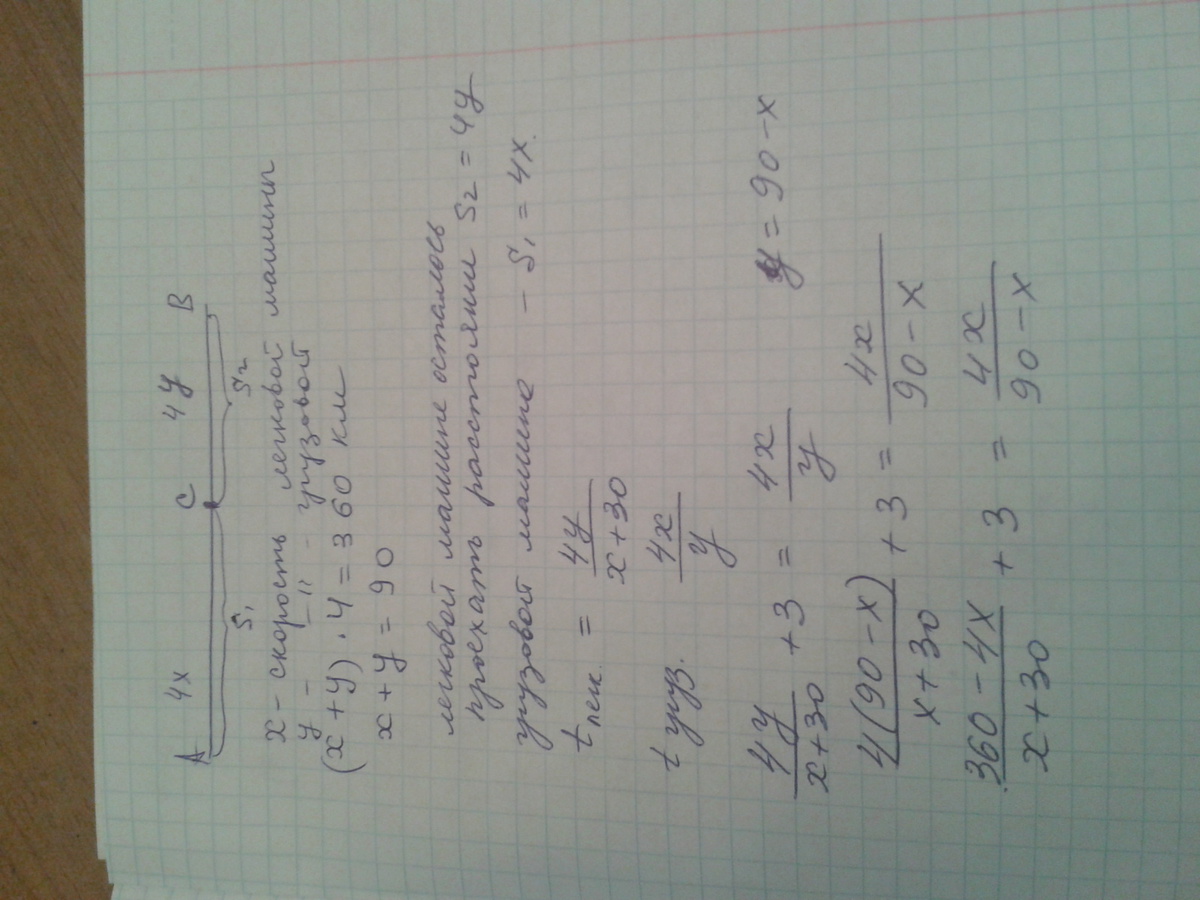 4x 4y
A C B
S₁ S₂
x - скорость легковой машины
y - -"- грузовой
(x+y)·4=360 км
x+y=90
легковой машине осталось
проехать расстояние S₂=4y
грузовой машине - S₁=4x.
t лек. = 4y/(x+30)
t груз. 4x/y
4y/(x+30) +3 = 4x/y y=90-x
4(90-x)/(x+30) +3 = 4x/(90-x)
(360-4x)/(x+30) +3 = 4x/(90-x)